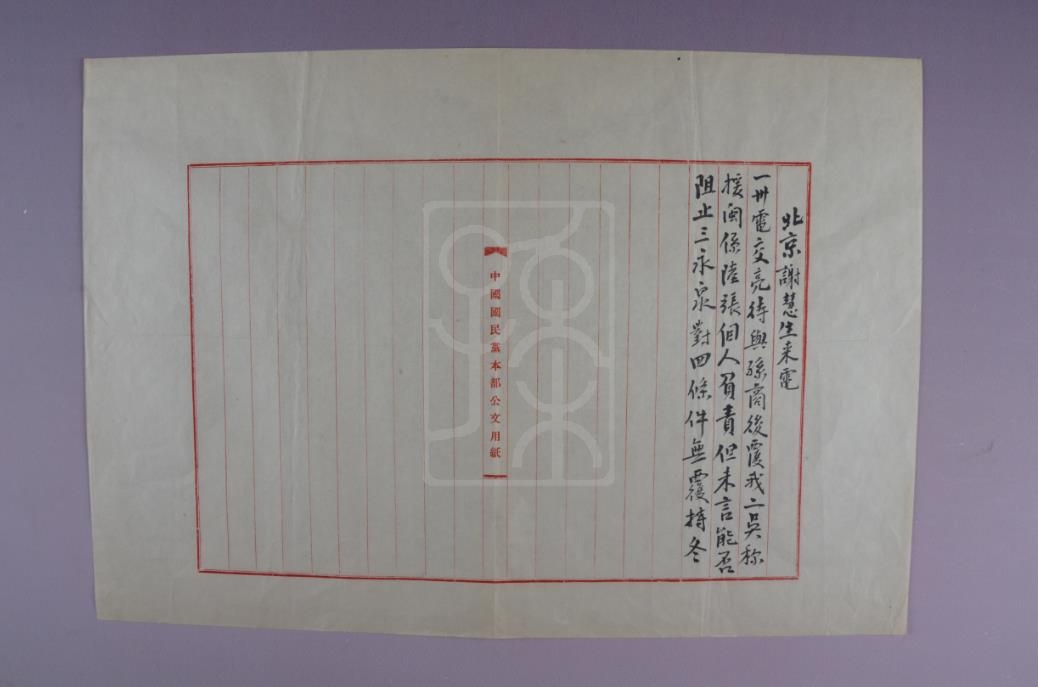 北京謝慧生来電
一卅電交亮待與孫商後覆我二吳称
援閩係陸張個人負責但未言能否
阻止三永泉對四條件無覆持冬
中國國民黨本部公文用紙